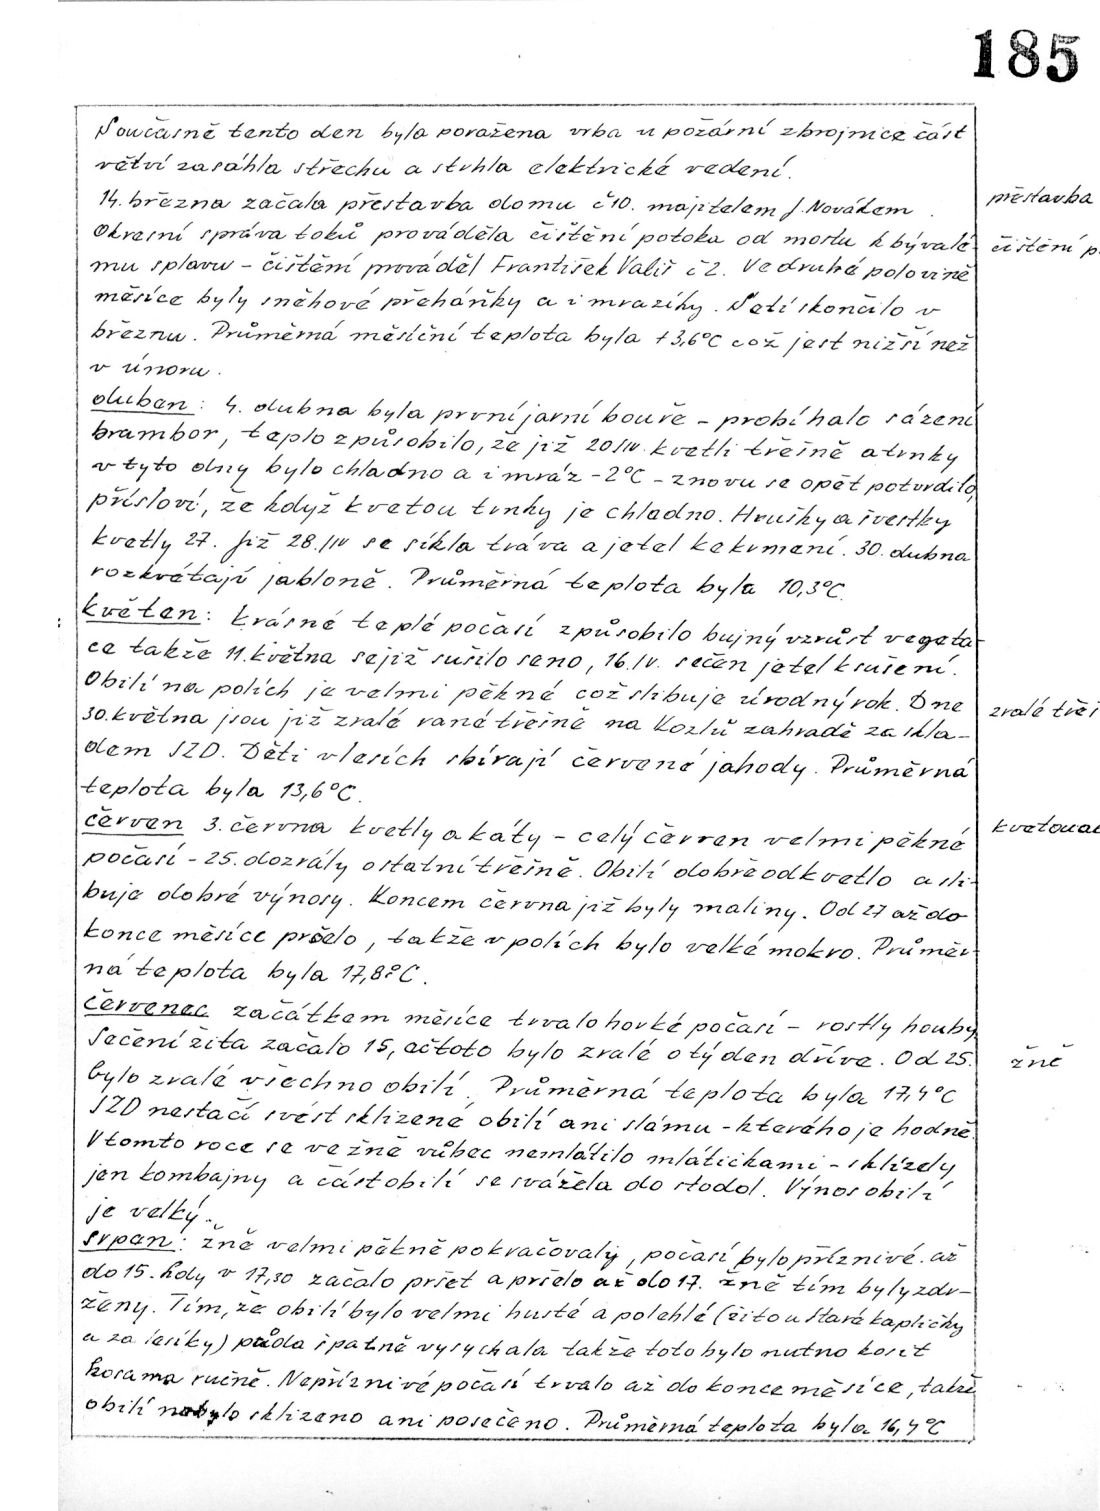 185
Současně tento den byla poražena vrba u požární zbrojnice část
větví zasáhla střechu a strhla elektrické vedení.
14. března začala přestavba domu č10. majitelem J. Novákem.
přestavba
Okresní správa toků prováděla čištění potoka od mostu k bývalé-
čištění p
mu splavu – čištění prováděl František Vališ č2. Ve druhé polovině
měsíce byly sněhové přeháňky a i mrazíky. Setí skončilo v
březnu. Průměrná měsíční teplota byla +3,6°C což jest nižší než
v únoru.
duben: 4. dubna byla první jarní bouře – probíhalo sázení
brambor, teplo způsobilo, že již 20/IV. kvetli třešně a trnky
v tyto dny bylo chladno a i mráz –2°C – znovu se opět potvrdilo,
přísloví, že když kvetou trnky je chladno. Hrušky a švestky
kvetly 27. již 28./IV se síkla tráva a jetel ke krmení. 30. dubna
rozkvétají jabloně. Průměrná teplota byla 10,3°C.
květen: krásné teplé počasí způsobilo bujný vzrůst vegeta-
ce takže 11. května se již sušilo seno, 16./V. sečen jetel k sušení.
Obilí na polích je velmi pěkné což slibuje úrodný rok. Dne
30. května jsou již zralé rané třešně na Kozlů zahradě za skla-
zralé třeš
dem JZD. Děti v lesích sbírají červené jahody. Průměrná
teplota byla 13,6°C.
červen 3. června kvetly akáty – celý červen velmi pěkné
kvetouc
počasí – 25. dozrály ostatní třešně. Obilí dobře odkvetlo a sli-
buje dobré výnosy. Koncem června již byly maliny. Od 27 až do
konce měsíce pršelo, takže v polích bylo velké mokro. Průměr-
ná teplota byla 17,8°C.
červenec začátkem měsíce trvalo horké počasí – rostly houby
Sečení žita začalo 15, ač toto bylo zralé o týden dříve. Od 25.
žně
bylo zralé všechno obilí. Průměrná teplota byla 17,4°C
JZD nestačí svést sklizené obilí ani slámu – kterého je hodně
V tomto roce se ve žně vůbec nemlátilo mlátičkami – sklízely
jen kombajny a část obilí se svážela do stodol. Výnos obilí
je velký.
srpen: žně velmi pěkně pokračovaly, počasí bylo příznivé. až
do 15. kdy v 17,30 začalo pršet a pršelo až do 17. žně tím byly zdr-
ženy. Tím, že obilí bylo velmi husté a polehlé (žito u Staré kapličky
a za lesíky) půda špatně vysychala takže toto bylo nutno kosit
kosama ručně. Nepříznivé počasí trvalo až do konce měsíce, takže
obilí nebylo sklizeno ani posečeno. Průměrná teplota byla 16,4°C